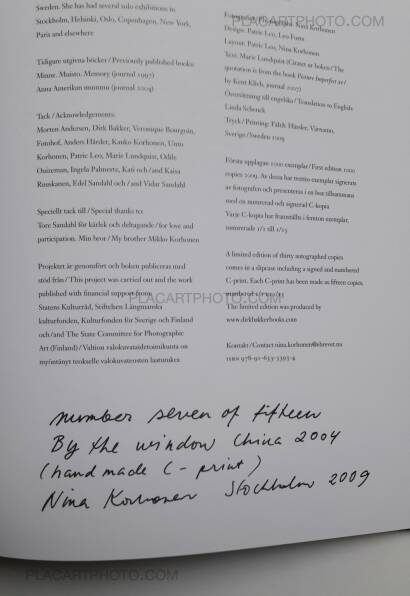 Sweden. She has had several solo exhibitions in
Stockholm, Helsinki, Oslo, Copenhagen, New York,
Paris and elsewhere
Tidigare utgivna böcker / Previously published books:
Minne. Muisto. Memory (journal 1997)
Anna Amerikan mummu (journal 2004)
Tack / Acknowledgements:
Morten Andersen, Dirk Bakker, Veronique Bourgoin,
Fotohof, Anders Härder, Kauko Korhonen, Unto
Korhonen, Patric Leo, Marie Lundquist, Odili
Ouizeman, Ingela Palmertz, Kati och / and Kaisa
Ruuskanen, Edel Sandahl och / and Vidar Sandahl
Speciellt tack till / Special thanks to:
Tore Sandahl för kärlek och deltagande / for love and
participation. Min bror / My brother Mikko Korhonen
Projektet är genomfört och boken publiceras med
stöd från / This project was carried out and the work
published with financial support from:
Statens Kulturråd, Stiftelsen Längmanska
kulturfonden, Kulturfonden för Sverige och Finland
och / and The State Committee for Photographic
Art (Finland) / Valtion valokuvataidetoimikunta on
myöntänyt teokselle valokuvateosten laatutukea
Nina Korhonen
Design: Patric Leo, Leo Form
Layout: Patric Leo, Nina Korhonen
Text: Marie Lundquist (Citatet ur boken / The
quotation is from the book Passus Imperfect av /
by Kent Klich, journal 2007)
Översättning till engelska / Translation to English:
Linda Schenck
Tryck / Printing: Fälth Hässler, Värnamo,
Sverige / Sweden 2009
Första upplagan 1000 exemplar / First edition 1000
copies 2009. Av dessa har trettio exemplar signerats
av fotografen och presenteras i en box tillsammans
med en numrerad och signerad C-kopia
Varje C-kopia har framställts i femton exemplar,
numrerade 1/15 till 15/15
A limited edition of thirty autographed copies
comes in a slipcase including a signed and numbered
C-print. Each C-print has been made as fifteen copies,
numbered 1/15 to 15/15
The limited edition was produced by
www.dirkbakkerbooks.com
Kontakt / Contact nina.korhonen@elsevet.nu
ISBN 978-91-633-3395-4
number seven of fifteen
By the window China 2004
(hand made C-print)
Nina Korhonen Stockholm 2009
PLACARTPHOTO.COM
PLACARTPHOTO.COM
PLACARTPHOTO.COM